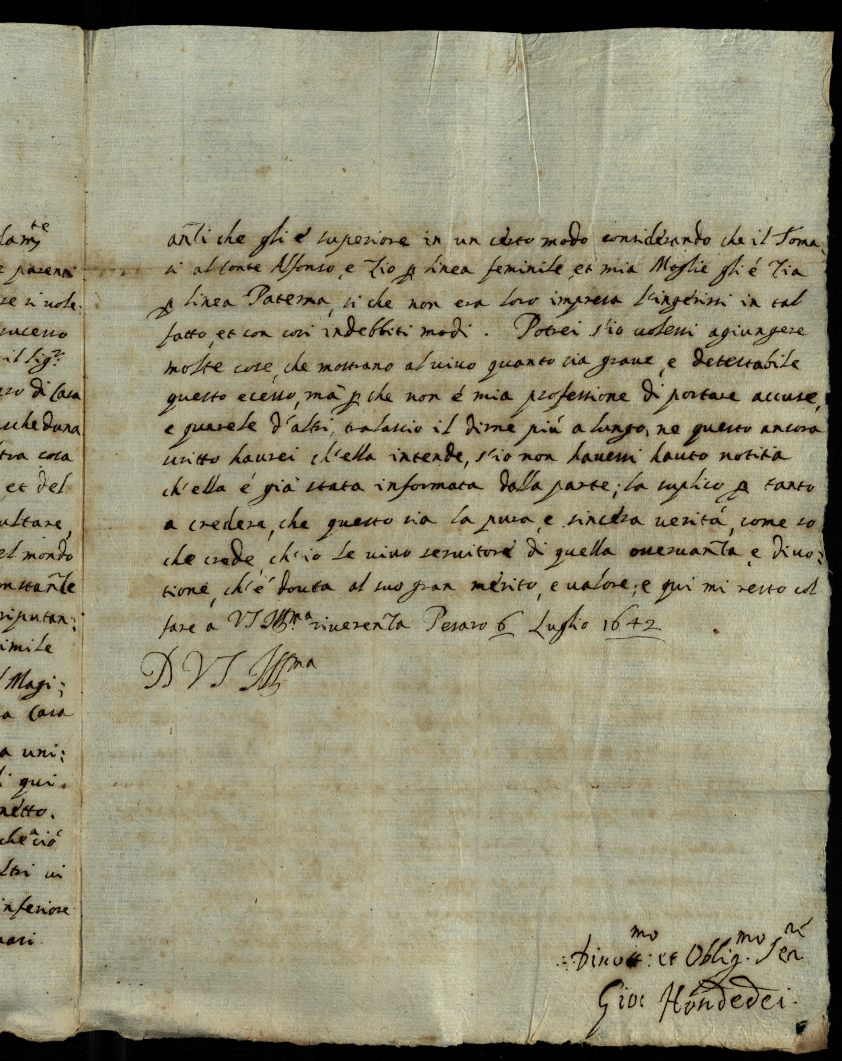 lam.te
e parenti
re si uole
successo
il Sig.r
ero di Casa
ascheduna
ltra cosa
et del
ultare,
el mondo
onstante
riputan:
imile
l Magi:
a Casa
a uni:
li qui
netto.
che ciò
ltri ui
inferiore
nari.
anti che gli é superiore in un certo modo considerando che il Toma
si al Conte Alfonso, e Zio p linea feminile, et mia Moglie gli é Zia
p linea Paterna, si che non era loro impresa l'ingerirsi in tal
fatto, et con cosi indebbiti modi. Potrei s'io uolessi agiungere
molte cose, che mostrano al uiuo quanto sia graue, e detestabile
questo ecesso, mà p che non é mia professione di portare accuse,
e querele d'altri, tralascio il dirne piú a lungo, ne questo ancora
scritto haurei ch'ella intende, s'io non hauessi hauto notitia
ch'ella é giá stata informata dalla parte; la suplico p tanto
a credere, che questo sia la pura, e sincera ueritá, come so
che crede, ch'io le uiuo seruitore di quella osseruanza, e diuo:
tione, ch'é douta al suo gran merito, e ualore; e qui mi resto col
fare a VS Ill.ma riuerenza Pesaro 6 Luglio 1642
D VS Ill.ma
Diuot.mo: et Oblig.mo Ser.re
Gio: Hondedei.